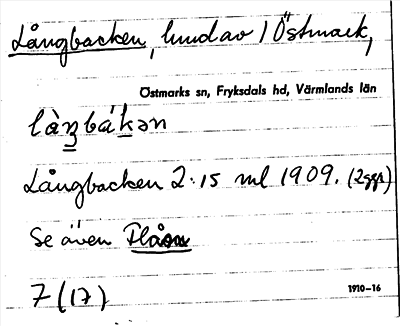 Långbacken, lund av / Östmark,
Östmarks sn, Fryksdals hd, Värmlands län
làŋbákən
Långbacken 2:15 ml 1909. (2ggr)
Se även Flåsen
7(17)
1910-16